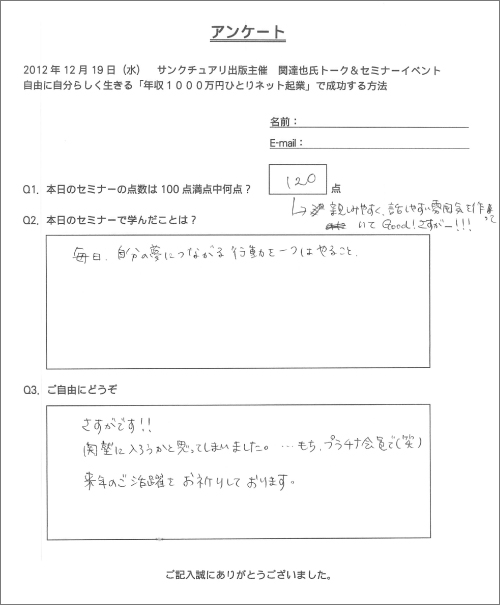 アンケート
2012年12月19日（水）　サンクチュアリ出版主催　関達也氏トーク＆セミナーイベント
自由に自分らしく生きる「年収１０００万円ひとりネット起業」で成功する方法
名前：
E-mail：
Q1．本日のセミナーの点数は100点満点中何点？ 120 点
↳親しみやすく、話しやすい雰囲気を作って
いて Good！さすがー！！！
Q2．本日のセミナーで学んだことは？
毎日、自分の夢につながる行動を一つはやること、
Q3．ご自由にどうぞ
さすがです！！
関塾に入ろうかと思ってしまいました。…もち、プラチナ会員で（笑）
来年のご活躍をお祈りしております。
ご記入誠にありがとうございました。